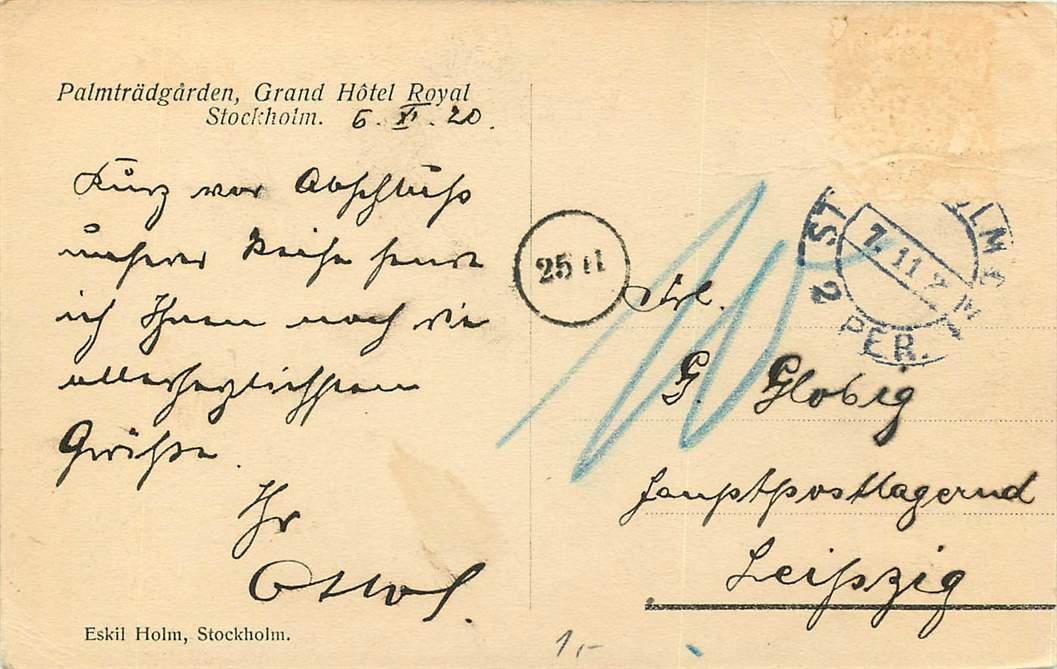 Palmträdgården, Grand Hôtel Royal
Stockholm. 6. XI. 20.
Kurz vor Abschluss
unserer Reise sende
ich Ihnen noch die
allerherzlichsten
Grüsse.
Ihr
Eskil Holm, Stockholm.
25 11
Frl.
G. Globig
hauptpostlagernd
Leipzig
7.11.2
PER.
1,-